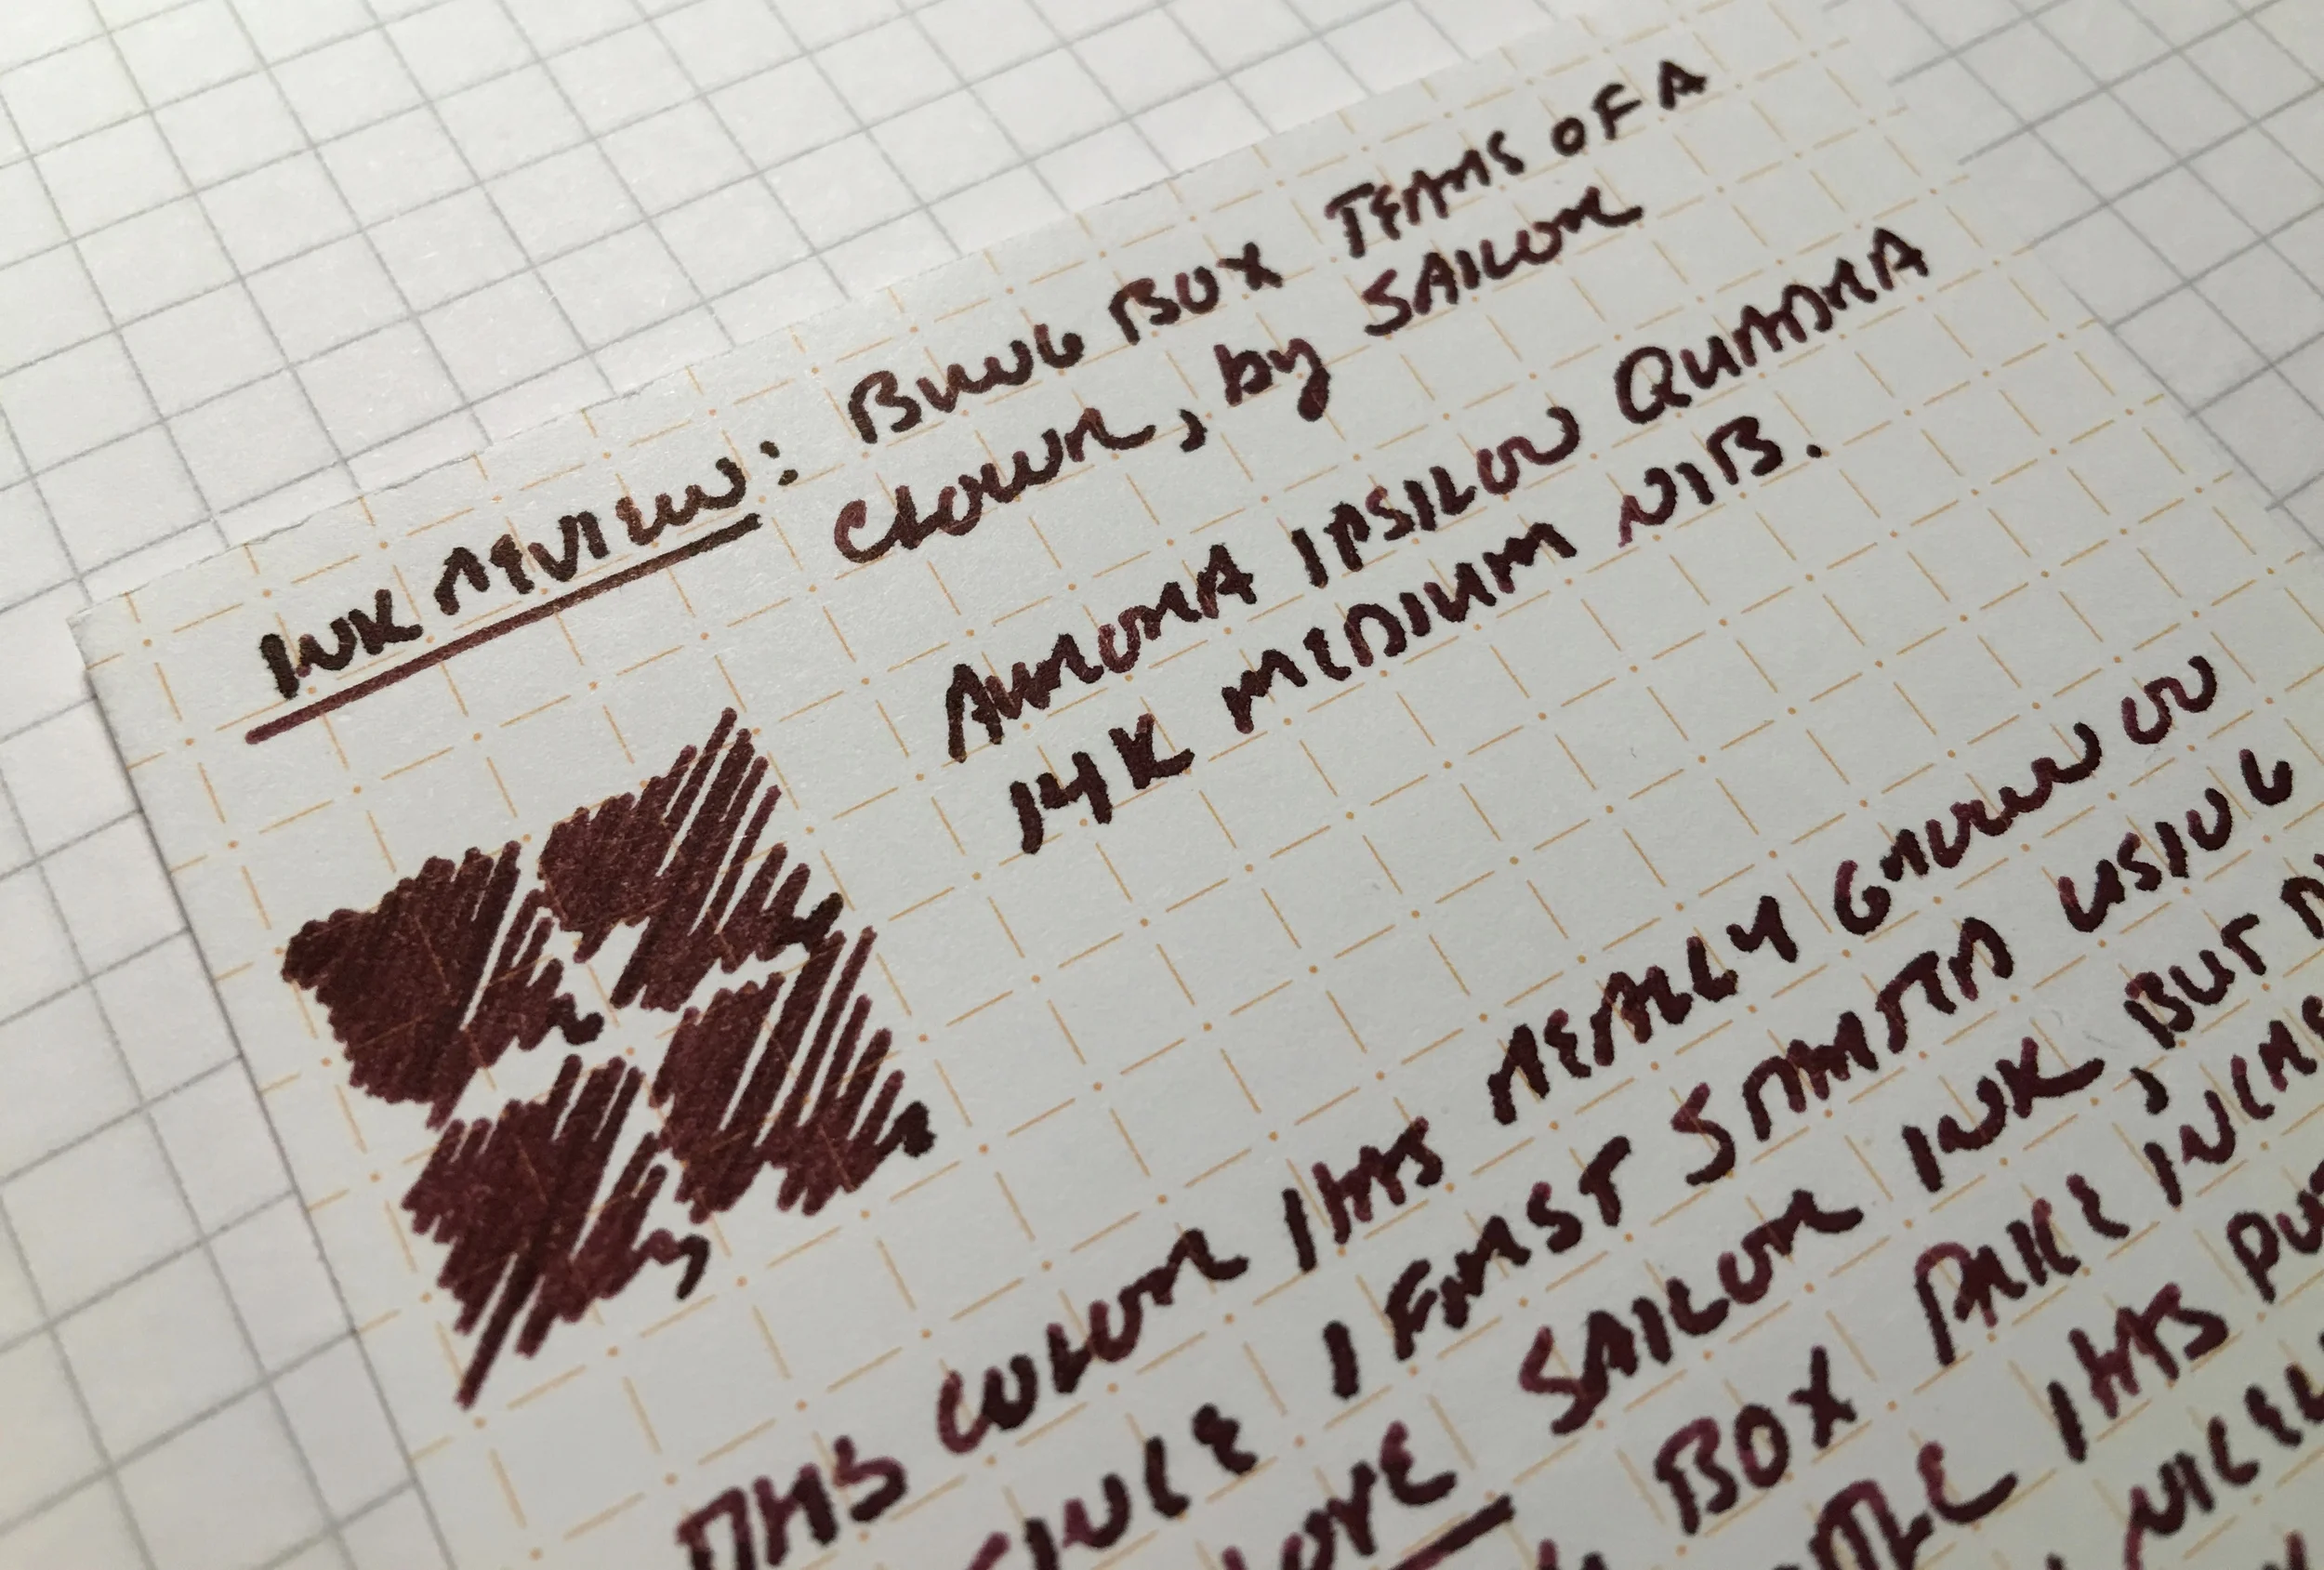 INK REVIEW: BUNG BOX TEARS OF A
CLOWN, by SAILOR
AURORA IPSILON QUADRA
14K MEDIUM NIB.
THIS COLOR HAS REALLY GROWN ON
SINCE I FIRST STARTED USING
LOVE SAILOR INK, BUT
BOX PRICE
HAS